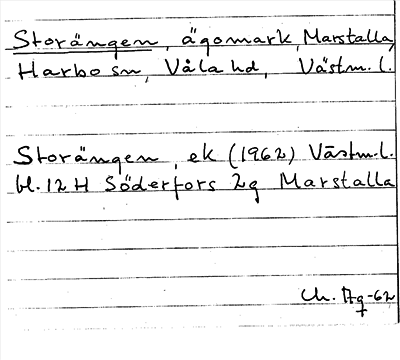 Storängen, ägomark, Marstalla,
Harbo sn, Våla hd, Västm.l.
Storängen, ek (1962) Västm.l.
bl. 12 H Söderfors 2g Marstalla
-62